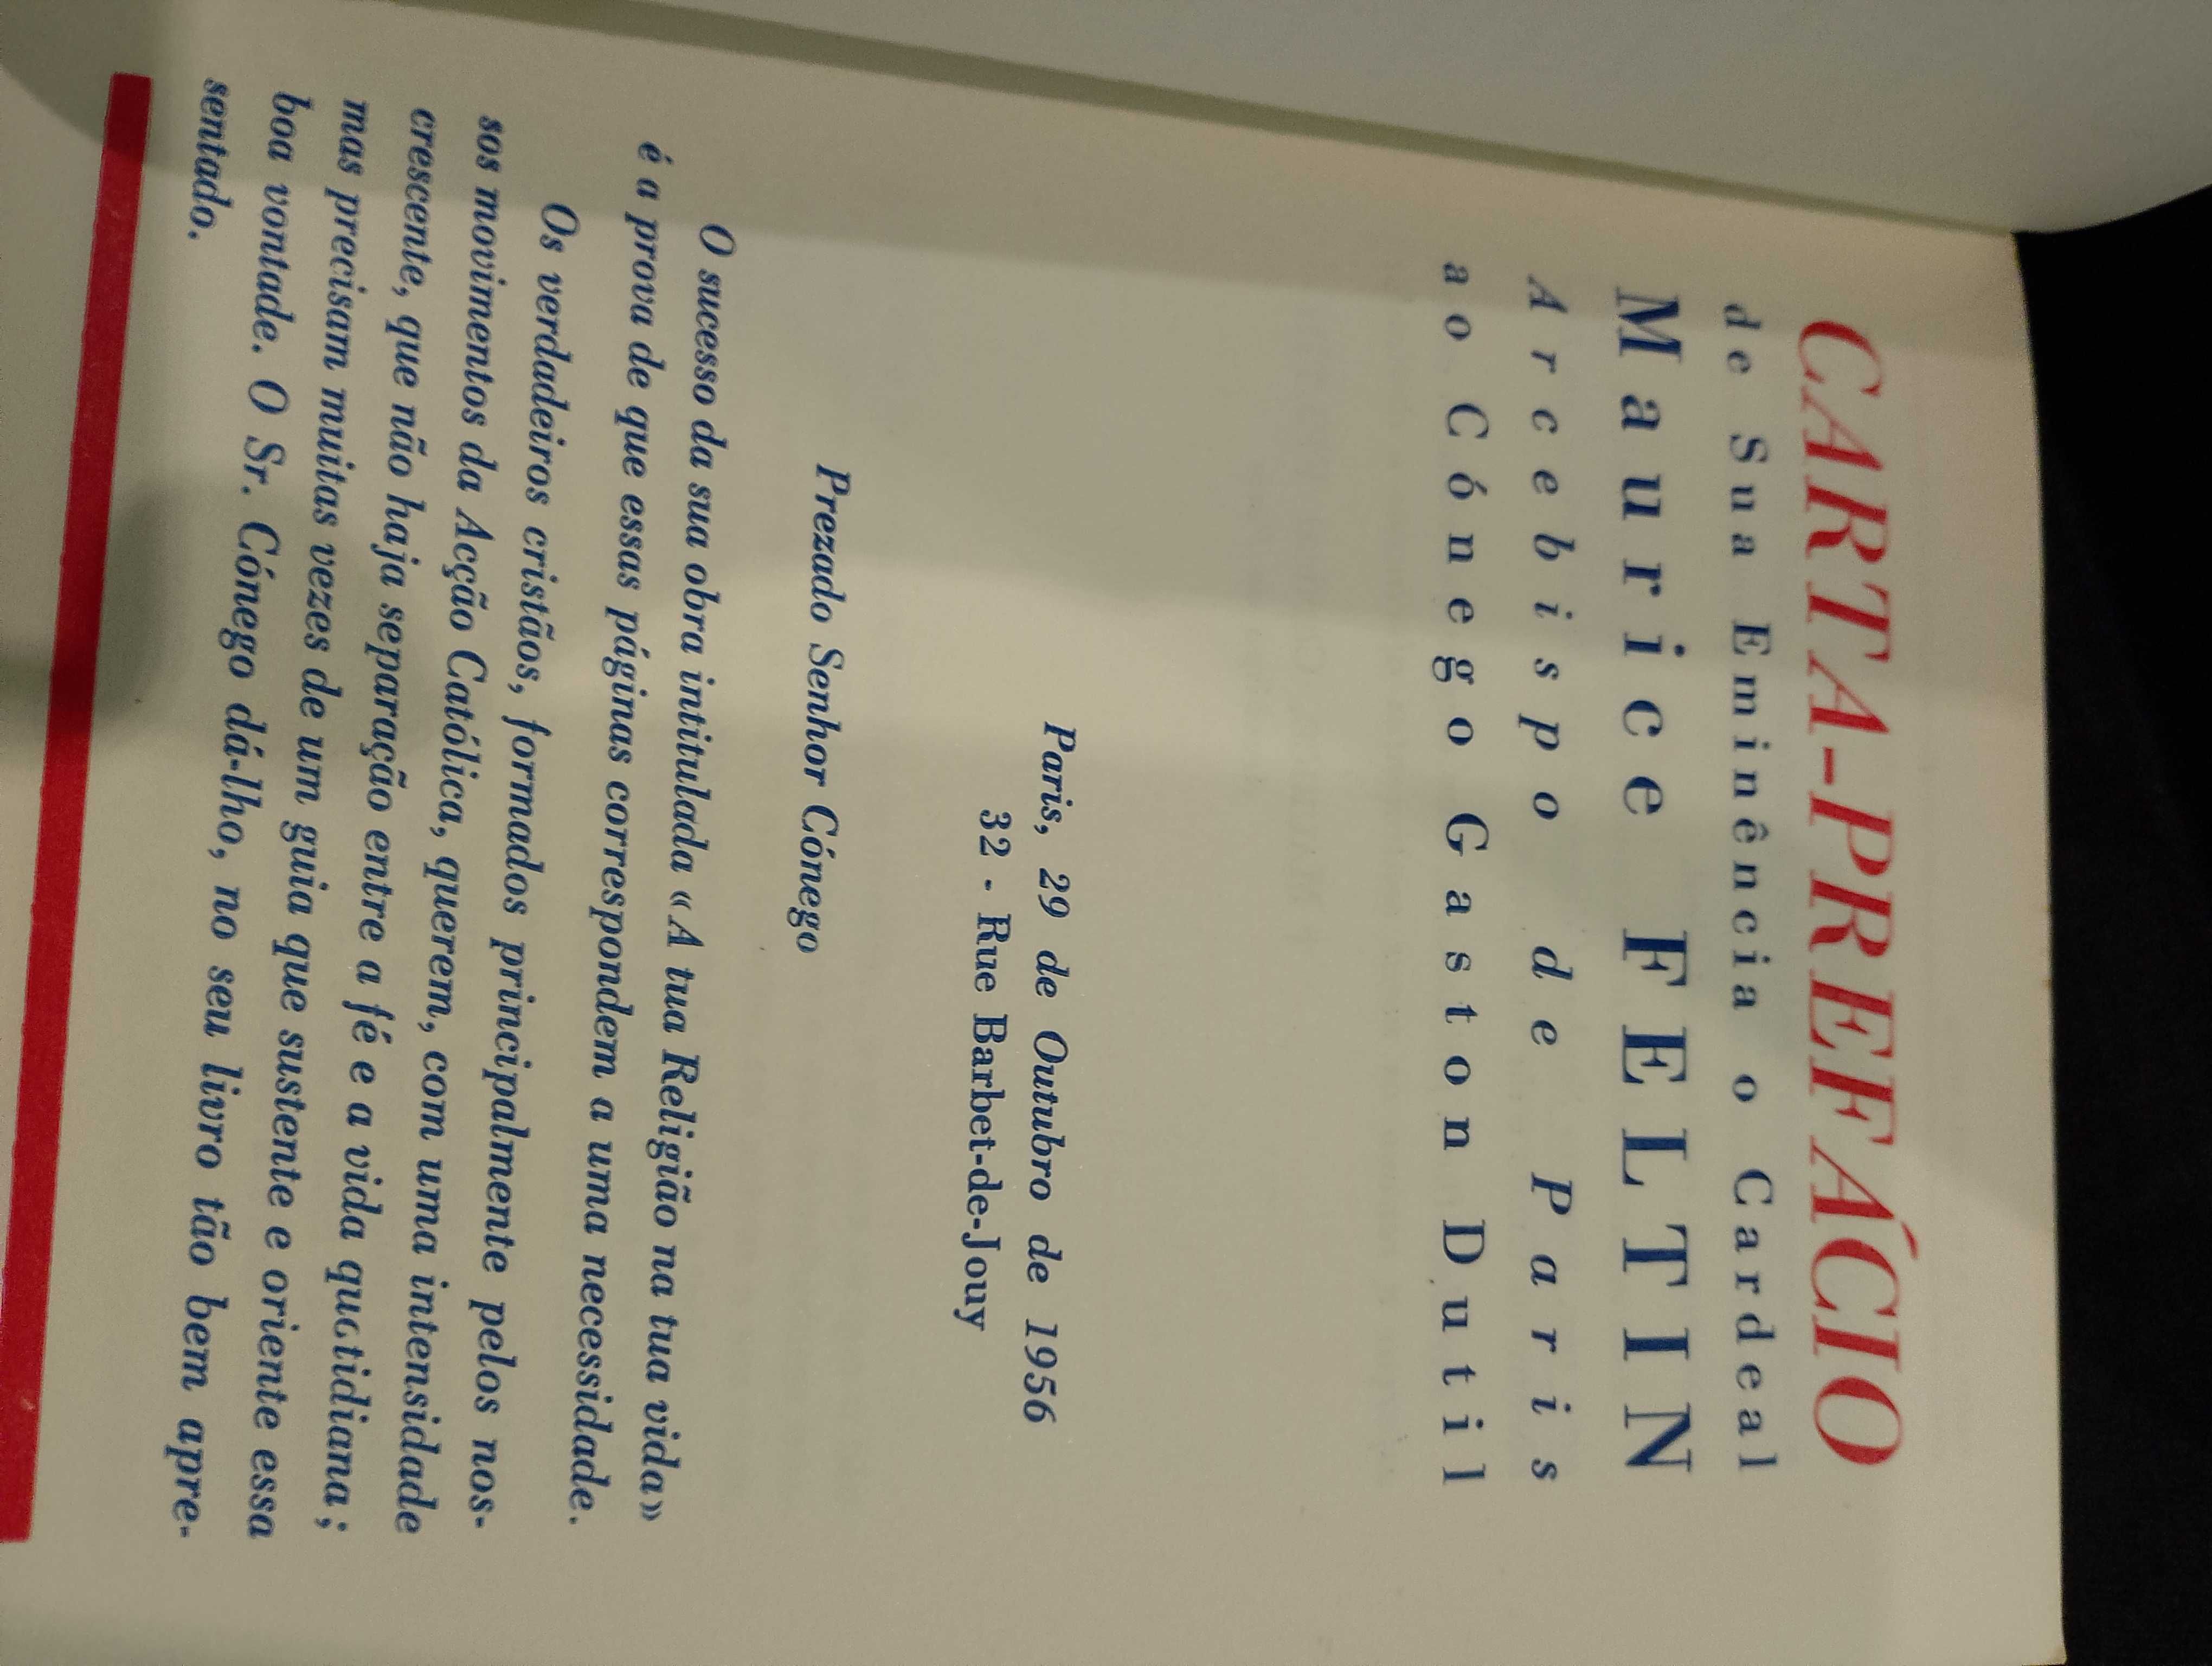 CARTA-PREFÁCIO
de Sua Eminência o Cardeal
Maurice FELTIN
Arcebispo de Paris
ao Cónego Gaston Dutil
Paris, 29 de Outubro de 1956
32 - Rue Barbet-de-Jouy
Prezado Senhor Cónego
O sucesso da sua obra intitulada «A tua Religião na tua vida»
é a prova de que essas páginas correspondem a uma necessidade.
Os verdadeiros cristãos, formados principalmente pelos nos-
sos movimentos da Acção Católica, querem, com uma intensidade
crescente, que não haja separação entre a fé e a vida quotidiana;
mas precisam muitas vezes de um guia que sustente e oriente essa
boa vontade. O Sr. Cónego dá-lho, no seu livro tão bem apre-
sentado.